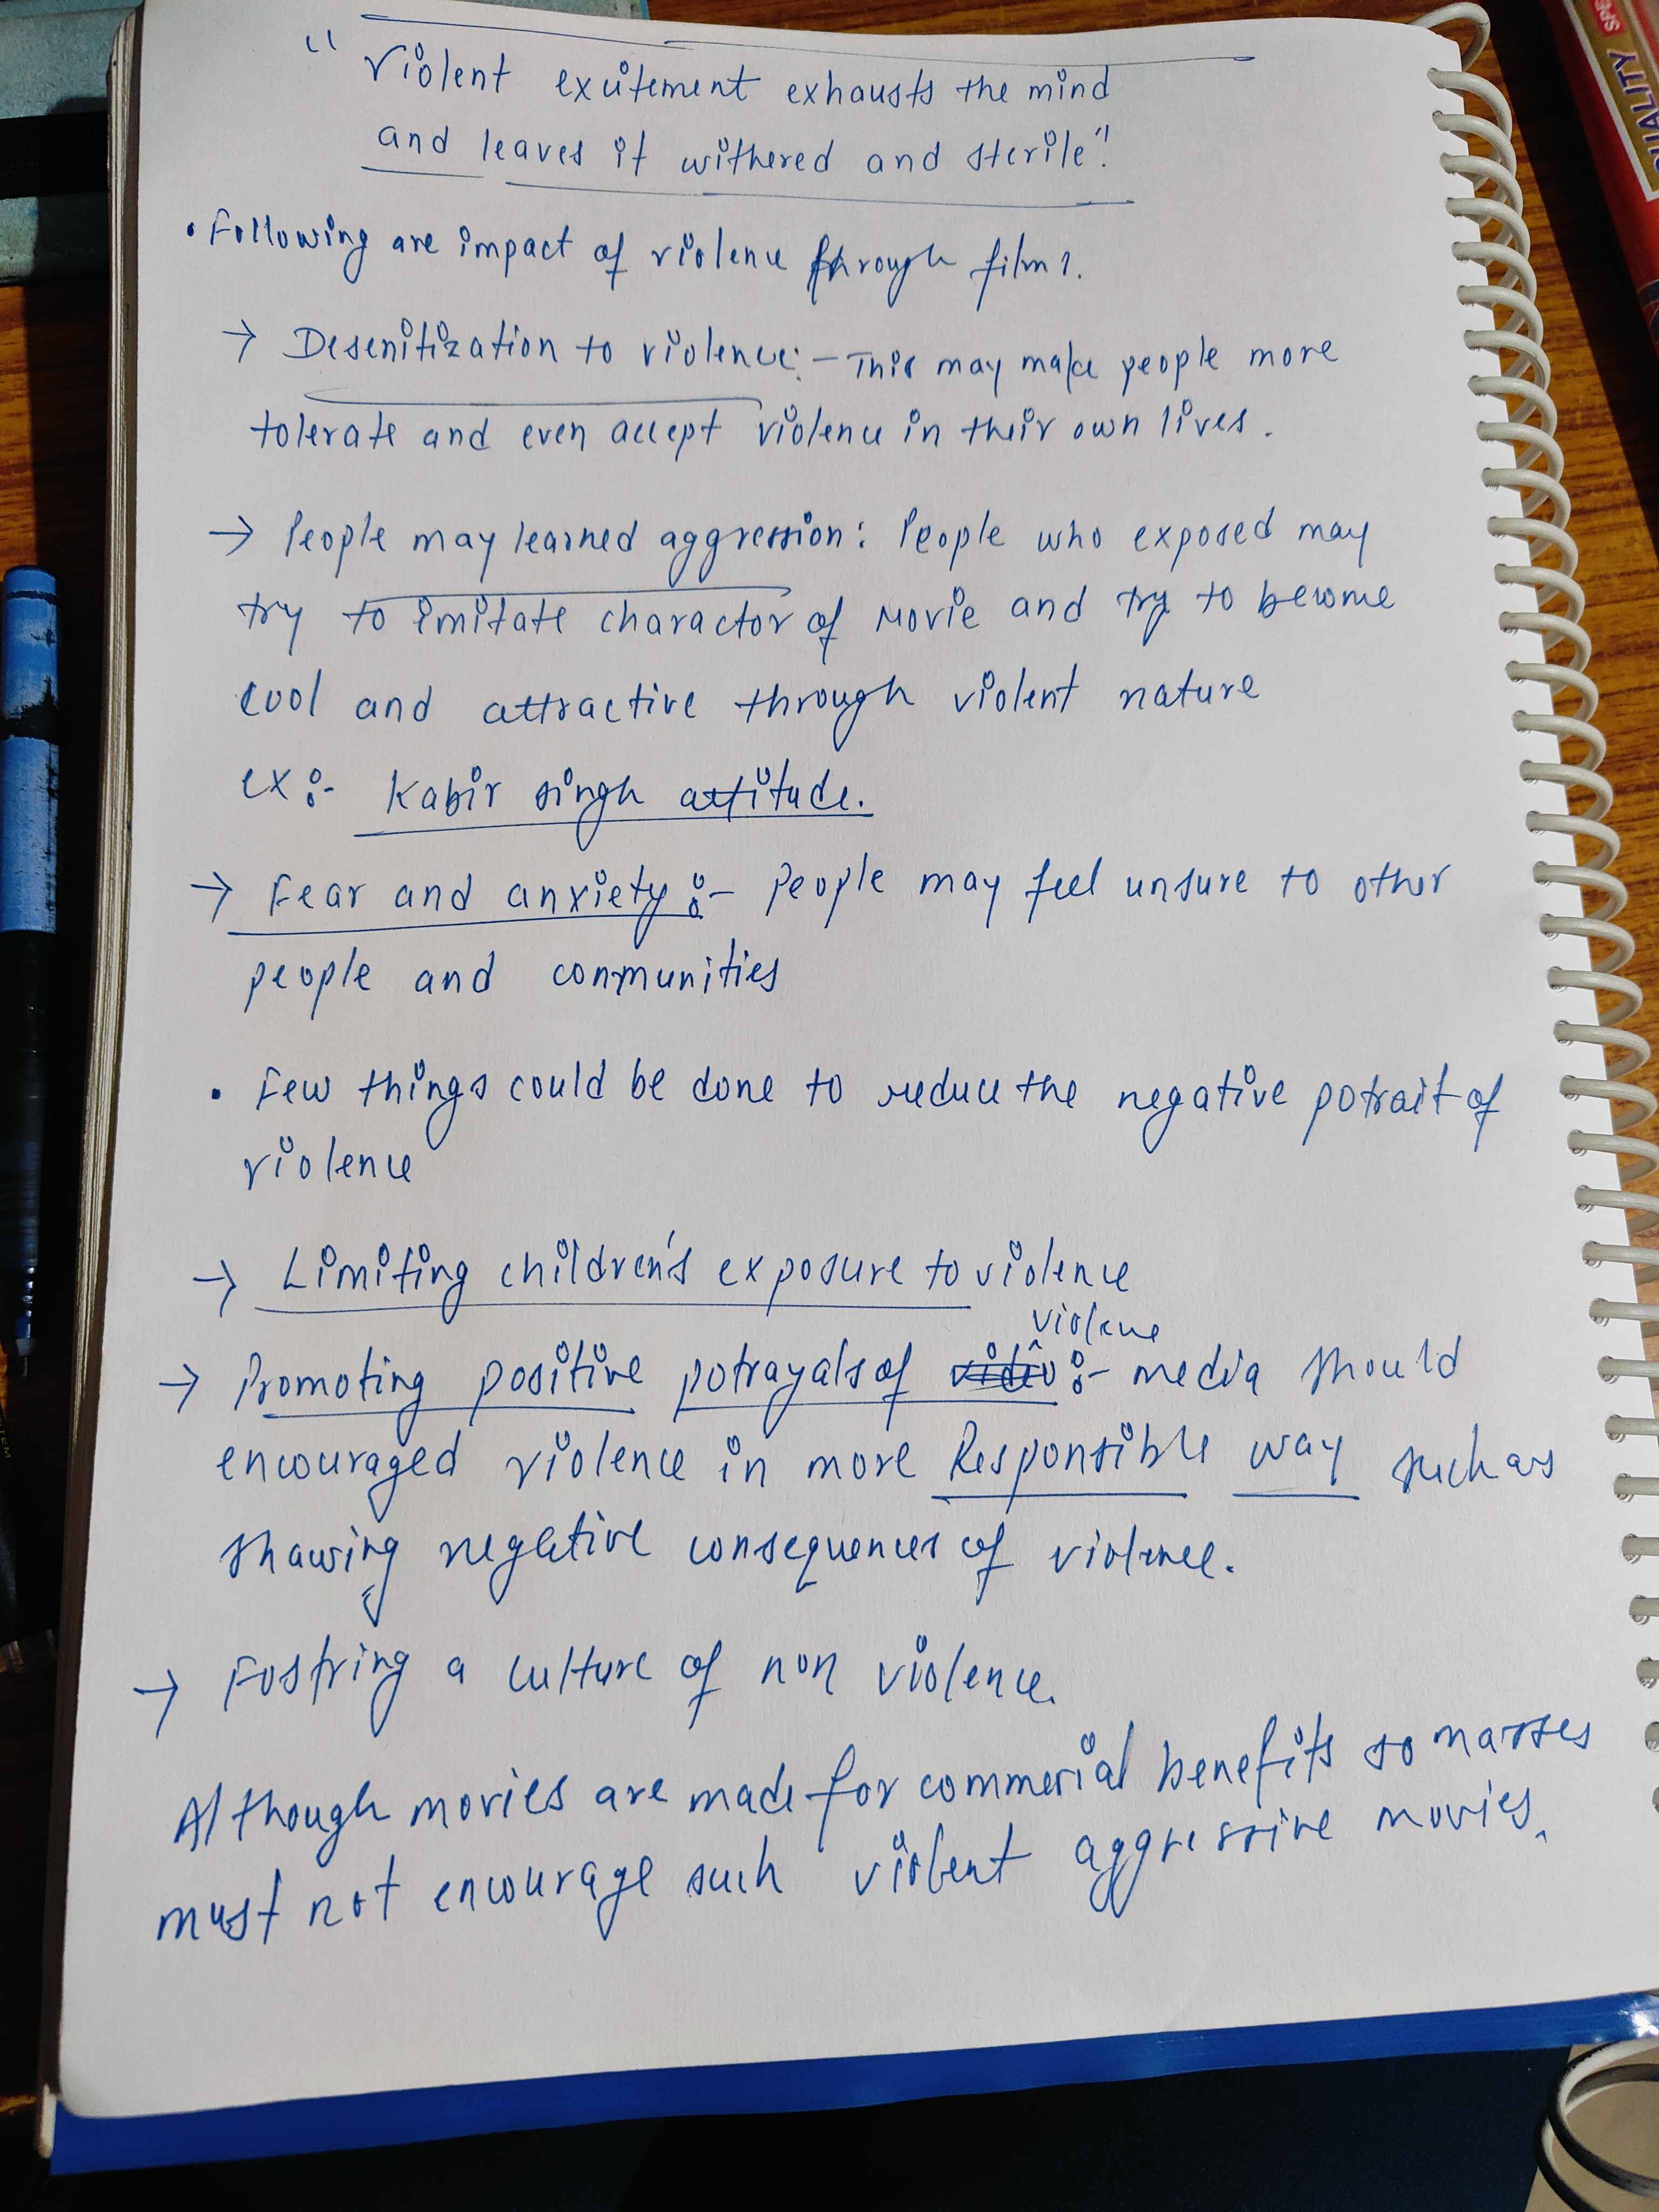 " Violent excitement exhausts the mind
and leaves it withered and sterile".
• Following are impact of violence through films.
→ Desenitization to violence:- This may make people more
tolerate and even accept violence in their own lives.
→ People may learned aggression: People who exposed may
try to imitate charactor of Movie and try to become
cool and attractive through violent nature
ex:- Kabir singh attitude.
→ Fear and anxiety:- People may feel unsure to other
people and communities
• Few things could be done to reduce the negative potrait of
violence
→ Limiting children's exposure to violence
violence
→ Promoting positive potrayals of :- media should
encouraged violence in more Responsible way such as
shawing negative consequences of violence.
→ Fostring a culture of non violence.
Although movies are made for commerial benefits so masses
must not encourage such violent aggressive movies.
QUALITY
SPE